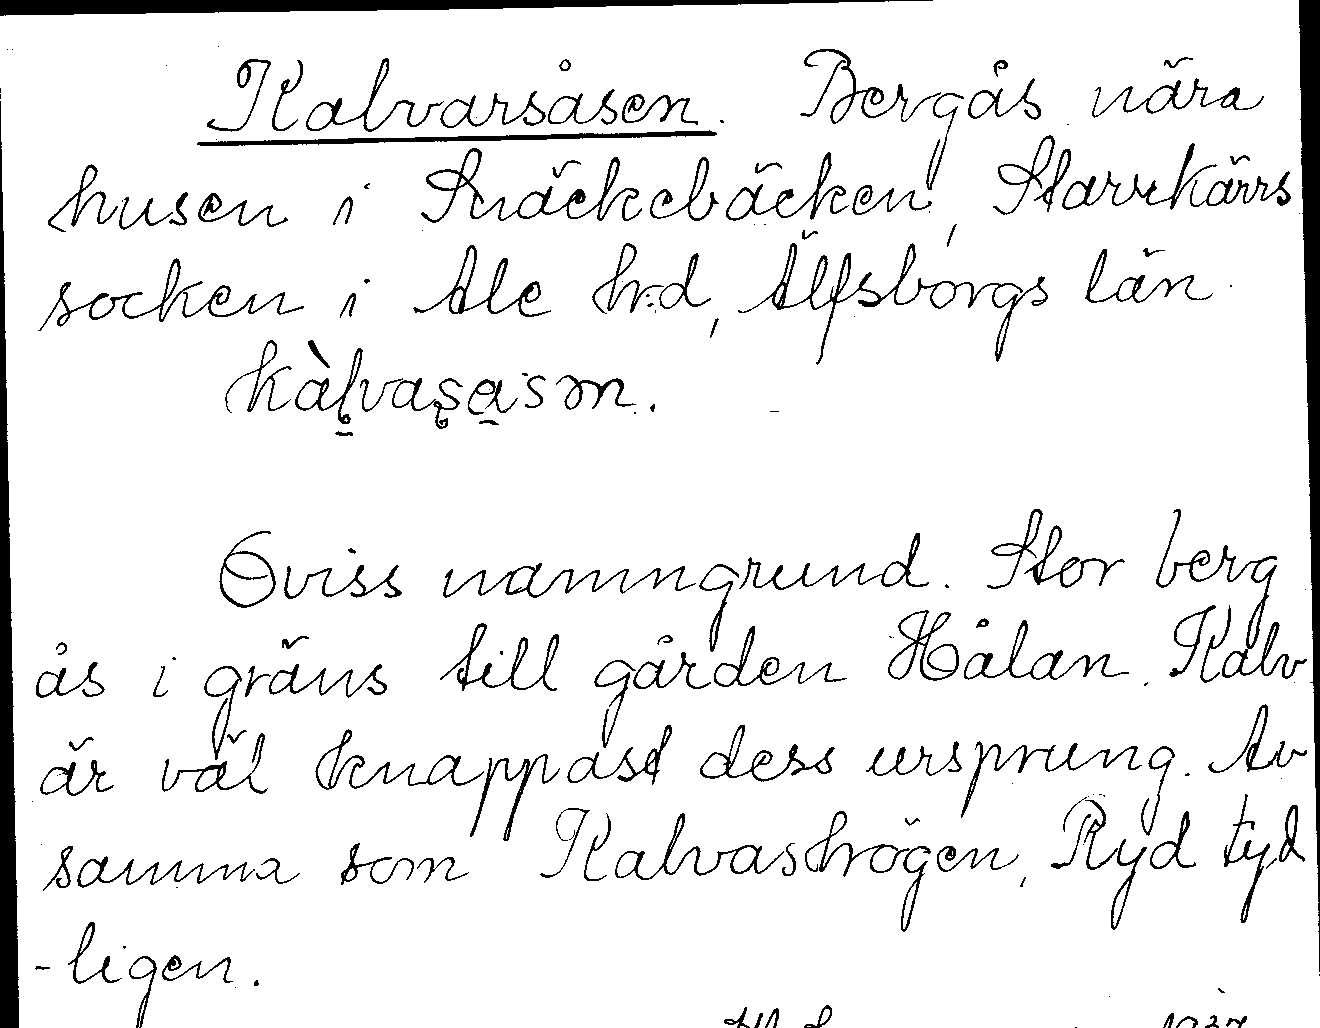 Kalvarsåsen. Bergås nära
husen i Snäckebäcken, Starrkärrs
socken i Ale hrd, Älfsborgs län
kàlvasasən.
Oviss namngrund. Stor berg
ås i gräns till gården Hålan. Kalv
är väl knappast dess ursprung. Av
samma som Kalvashögen, Ryd tyd
-ligen.
1937